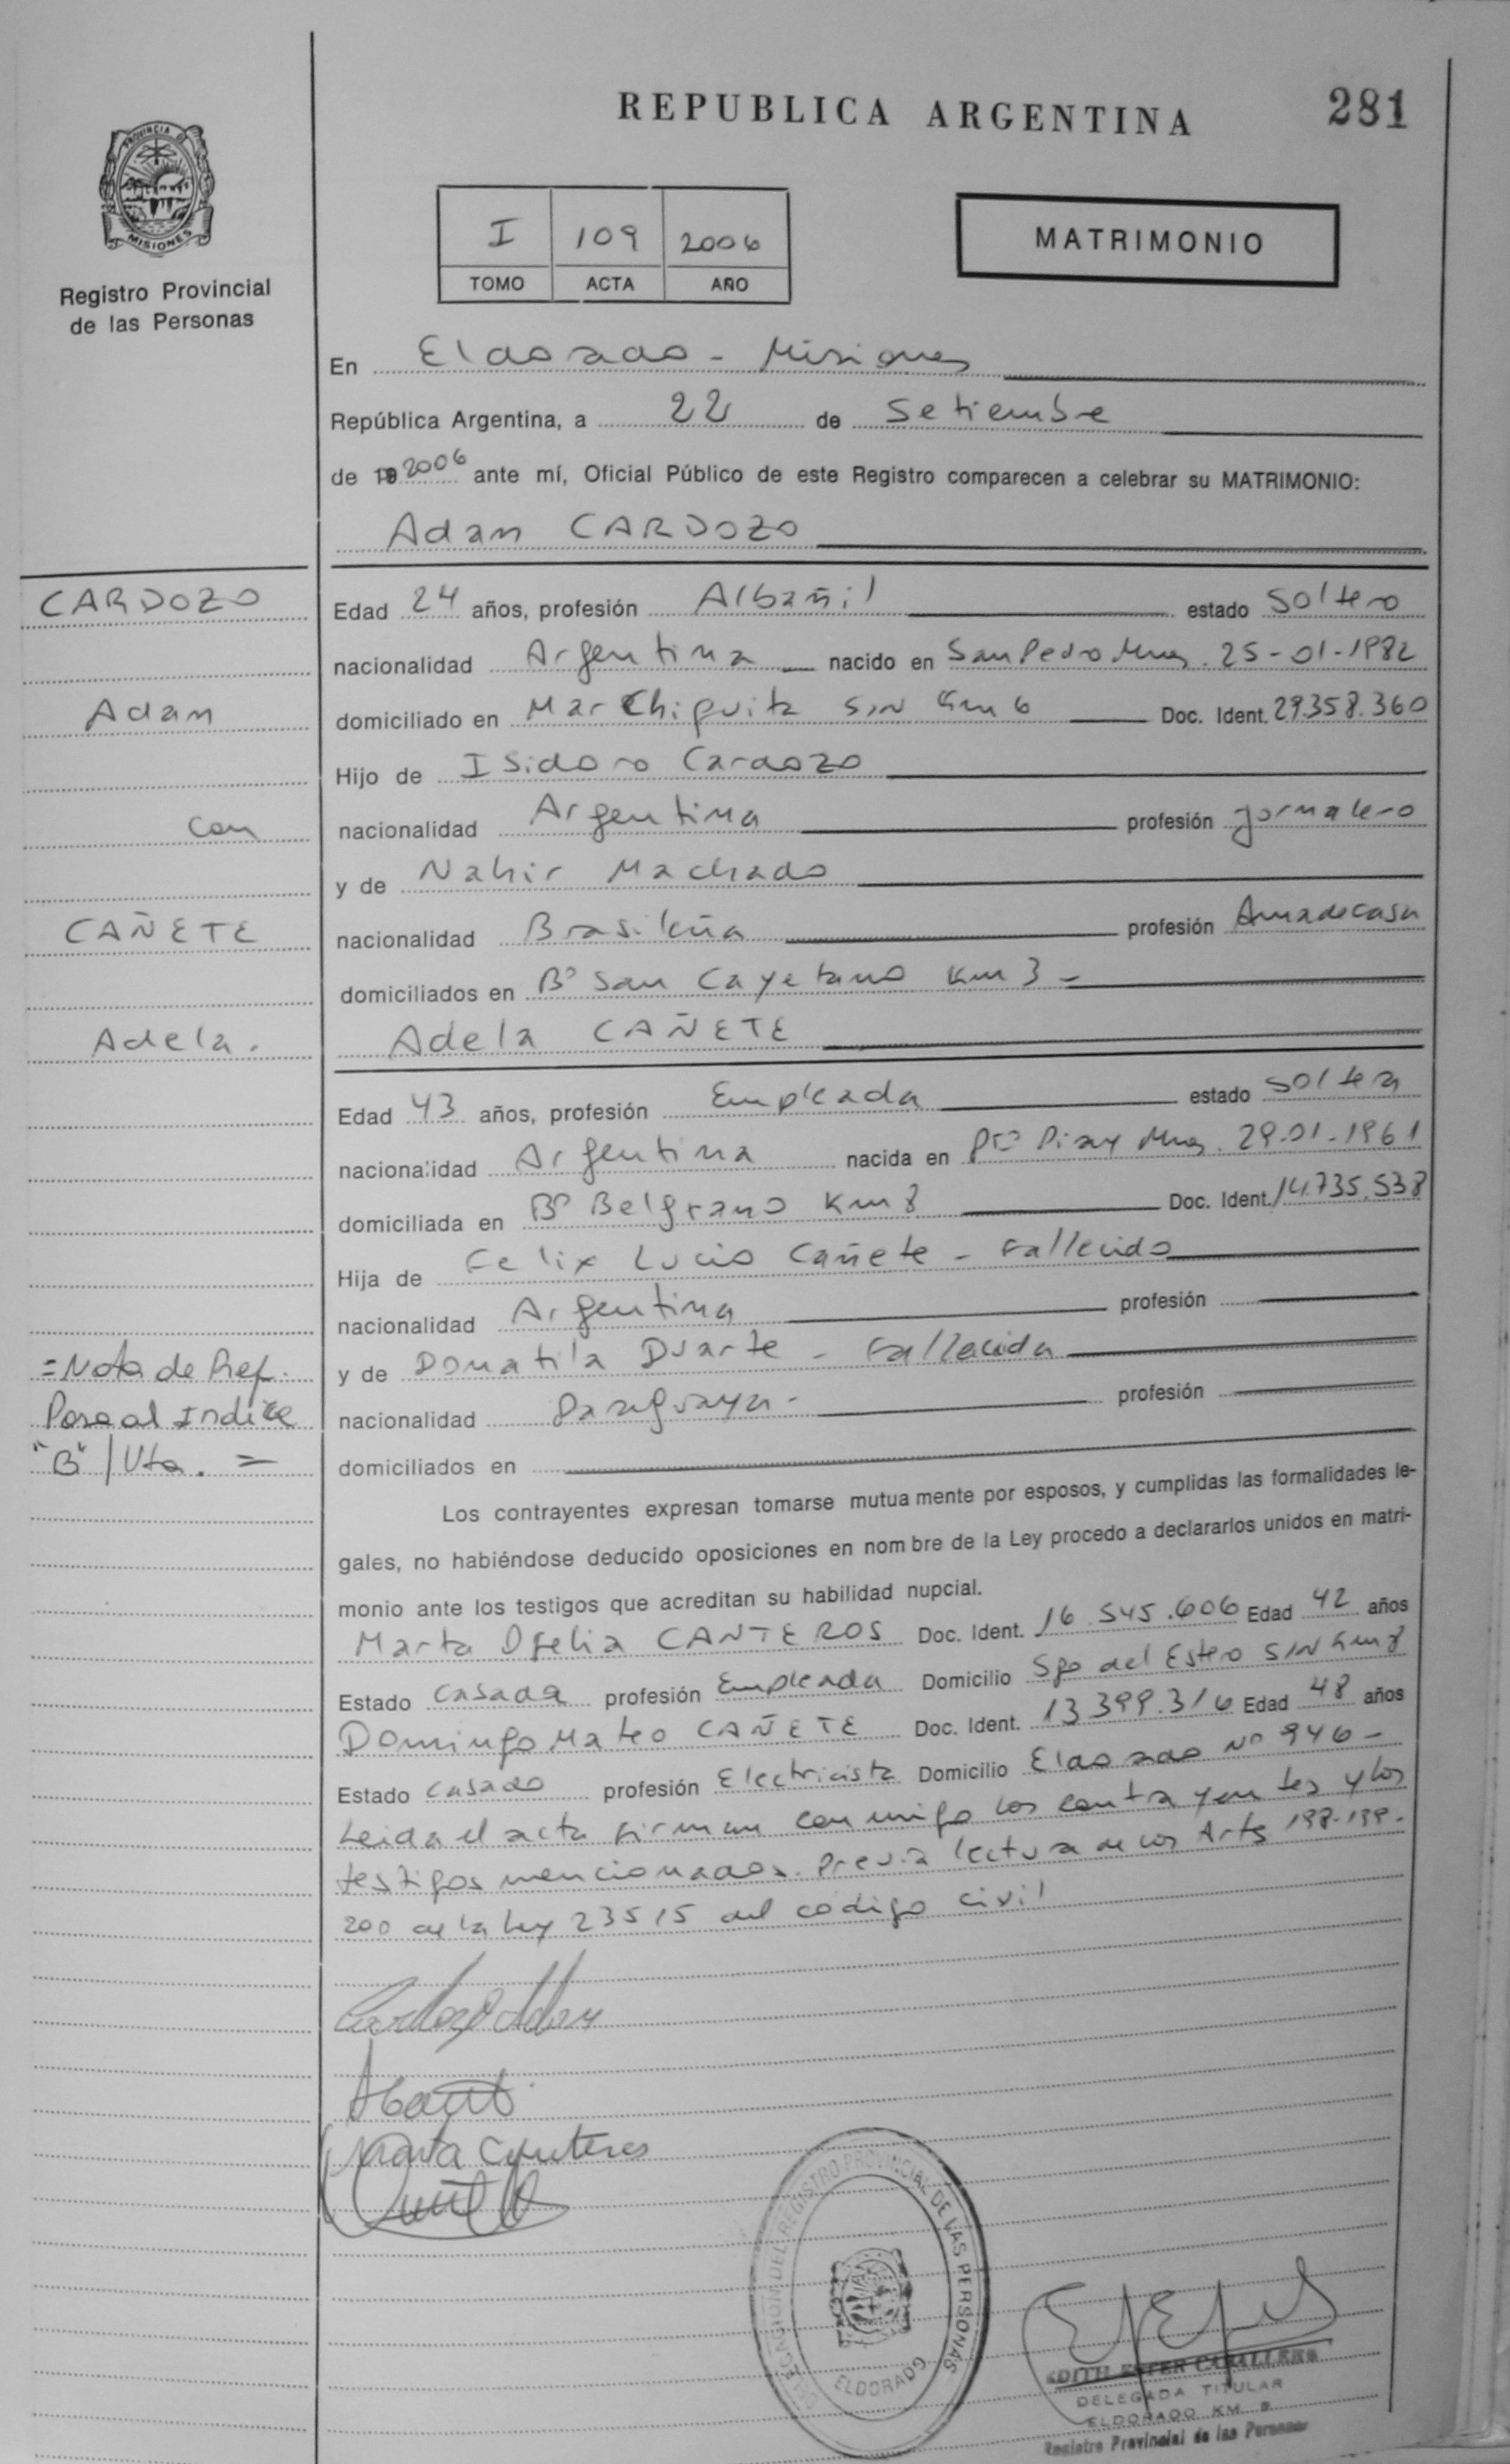 REPUBLICA ARGENTINA
281
PROVINCIA DE
MISIONES
Registro Provincial
de las Personas
I 109 2006
TOMO ACTA AÑO
MATRIMONIO
En Eldorado - Misiones
República Argentina, a 22 de Setiembre
de 19 2006 ante mí, Oficial Público de este Registro comparecen a celebrar su MATRIMONIO:
Adan CARDOZO
CARDOZO
Adan
con
CAÑETE
Adela.
Edad 24 años, profesión Albañil estado Soltero
nacionalidad Argentina nacido en San Pedro Mnes. 25-01-1982
domiciliado en Mar Chiquita S/N Km 6 Doc. Ident. 29.358.360
Hijo de Isidoro Cardozo
nacionalidad Argentina profesión jornalero
y de Nahir Machado
nacionalidad Brasileña profesión Ama de casa
domiciliados en Bº San Cayetano Km 3 -
Adela CAÑETE
Edad 43 años, profesión Empleada estado soltera
nacionalidad Argentina nacida en Pto Piray Mnes. 29-01-1961
domiciliada en Bº Belgrano Km 8 Doc. Ident. 14.735.538
Hija de Felix Lucio Cañete - Fallecido
nacionalidad Argentina profesión
y de Donatila Duarte - Fallecida
nacionalidad Paraguaya - profesión
domiciliados en
=Nota de Ref.
Pase al Indice
"B" / Vta. =
Los contrayentes expresan tomarse mutuamente por esposos, y cumplidas las formalidades le-
gales, no habiéndose deducido oposiciones en nombre de la Ley procedo a declararlos unidos en matri-
monio ante los testigos que acreditan su habilidad nupcial.
Marta Ofelia CANTEROS Doc. Ident. 16.545.606 Edad 42 años
Estado Casada profesión Empleada Domicilio Sgo del Estero S/N Km 8
Domingo Mateo CAÑETE Doc. Ident. 13.399.316 Edad 48 años
Estado Casado profesión Electricista Domicilio Eldorado Nº 946 -
Leida el acta firman conmigo los contrayentes y los
testigos mencionados. Previa lectura de los Arts 198-199-
200 de la ley 23515 del codigo civil
Cardozo Adan
Marta Canteros
DELEGACION DEL REGISTRO PROVINCIAL DE LAS PERSONAS
ELDORADO
EDITH ESTER CABALLERO
DELEGADA TITULAR
ELDORADO KM. 9
Registro Provincial de las Personas